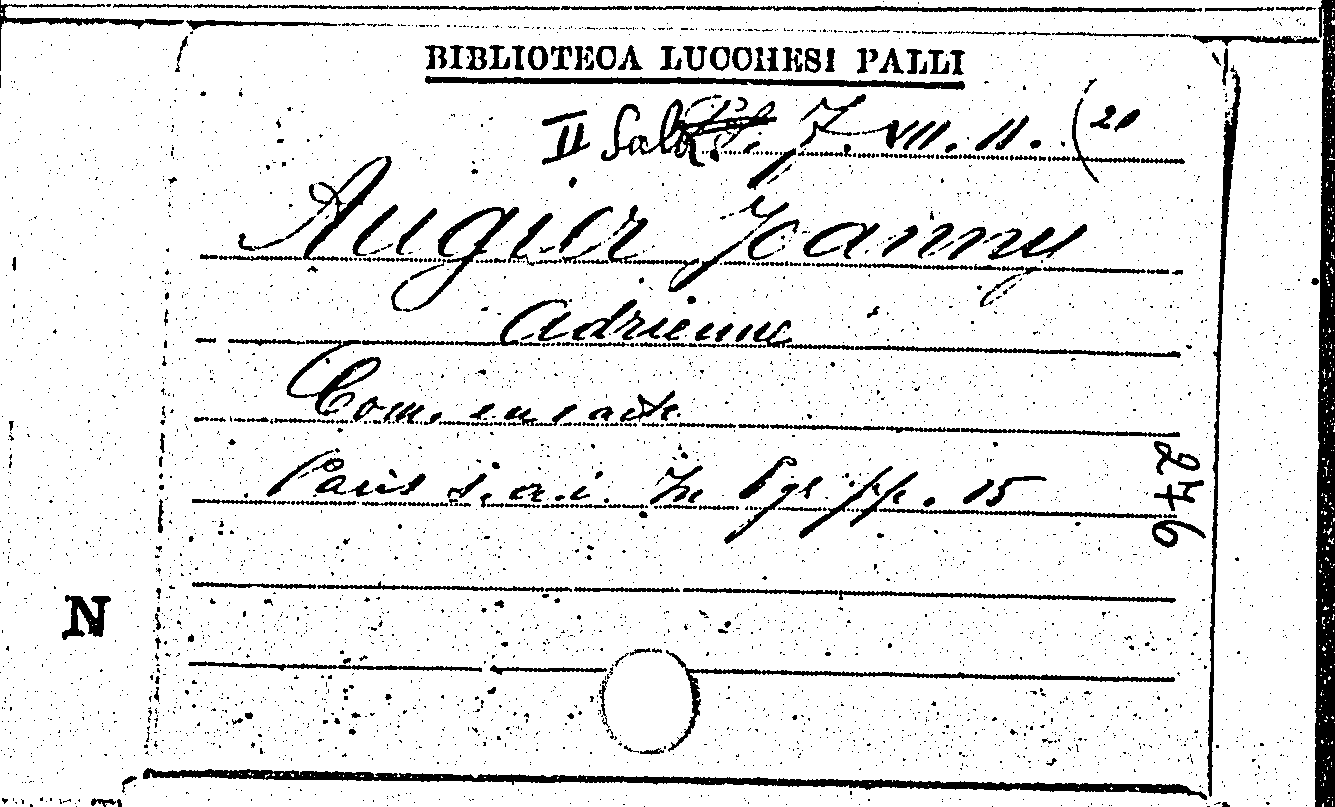 BIBLIOTECA LUCCHESI PALLI
II Sala 7. VII. 11. (20
Augier Joanny
Adrienne
Com. en 1 acte
Paris s. a. i. In 8gr pp. 15
246
N